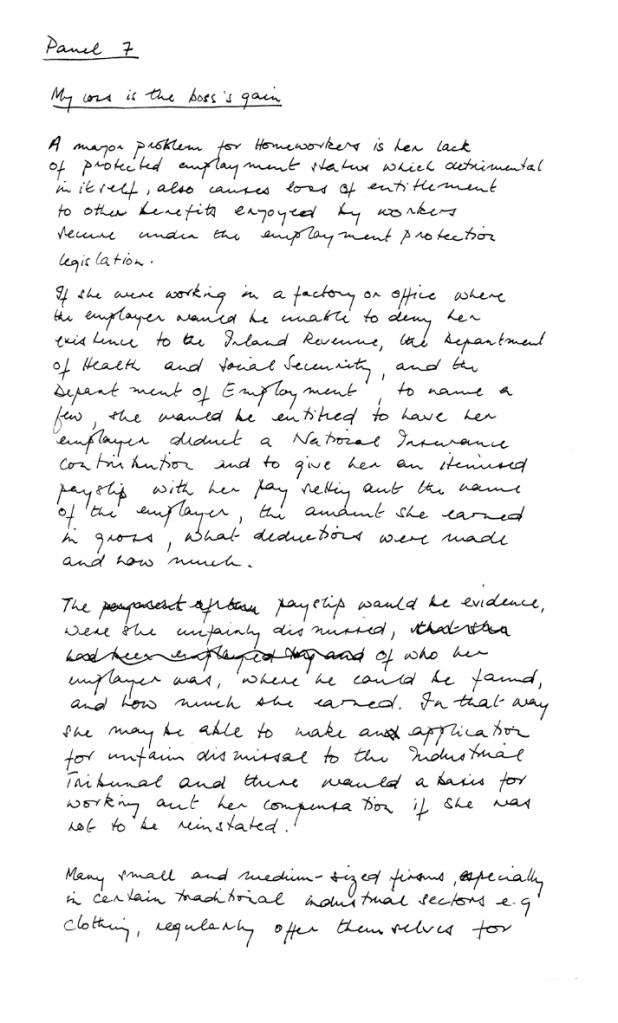 Panel 7
My loss is the boss's gain
A major problem for Homeworkers is her lack
of protected employment status which detrimental
in itself, also causes loss of entitlement
to other benefits enjoyed by workers
secure under the employment protection
legislation.
If she were working in a factory or office where
the employer would be unable to deny her
existence to the Inland Revenue, the Department
of Health and Social Security, and the
Department of Employment, to name a
few, she would be entitled to have her
employer deduct a National Insurance
contribution and to give her an itemised
payslip with her pay setting out the name
of the employer, the amount she earned
in gross, what deductions were made
and how much.
The payslip would be evidence,
were she unfairly dismissed, that she
had been employed by and of who her
employer was, where he could be found,
and how much she earned. In that way
she may be able to make an application
for unfair dismissal to the Industrial
Tribunal and there would a basis for
working out her compensation if she was
not to be reinstated.
Many small and medium-sized firms, especially
in certain traditional industrial sectors e.g
clothing, regularly offer themselves for